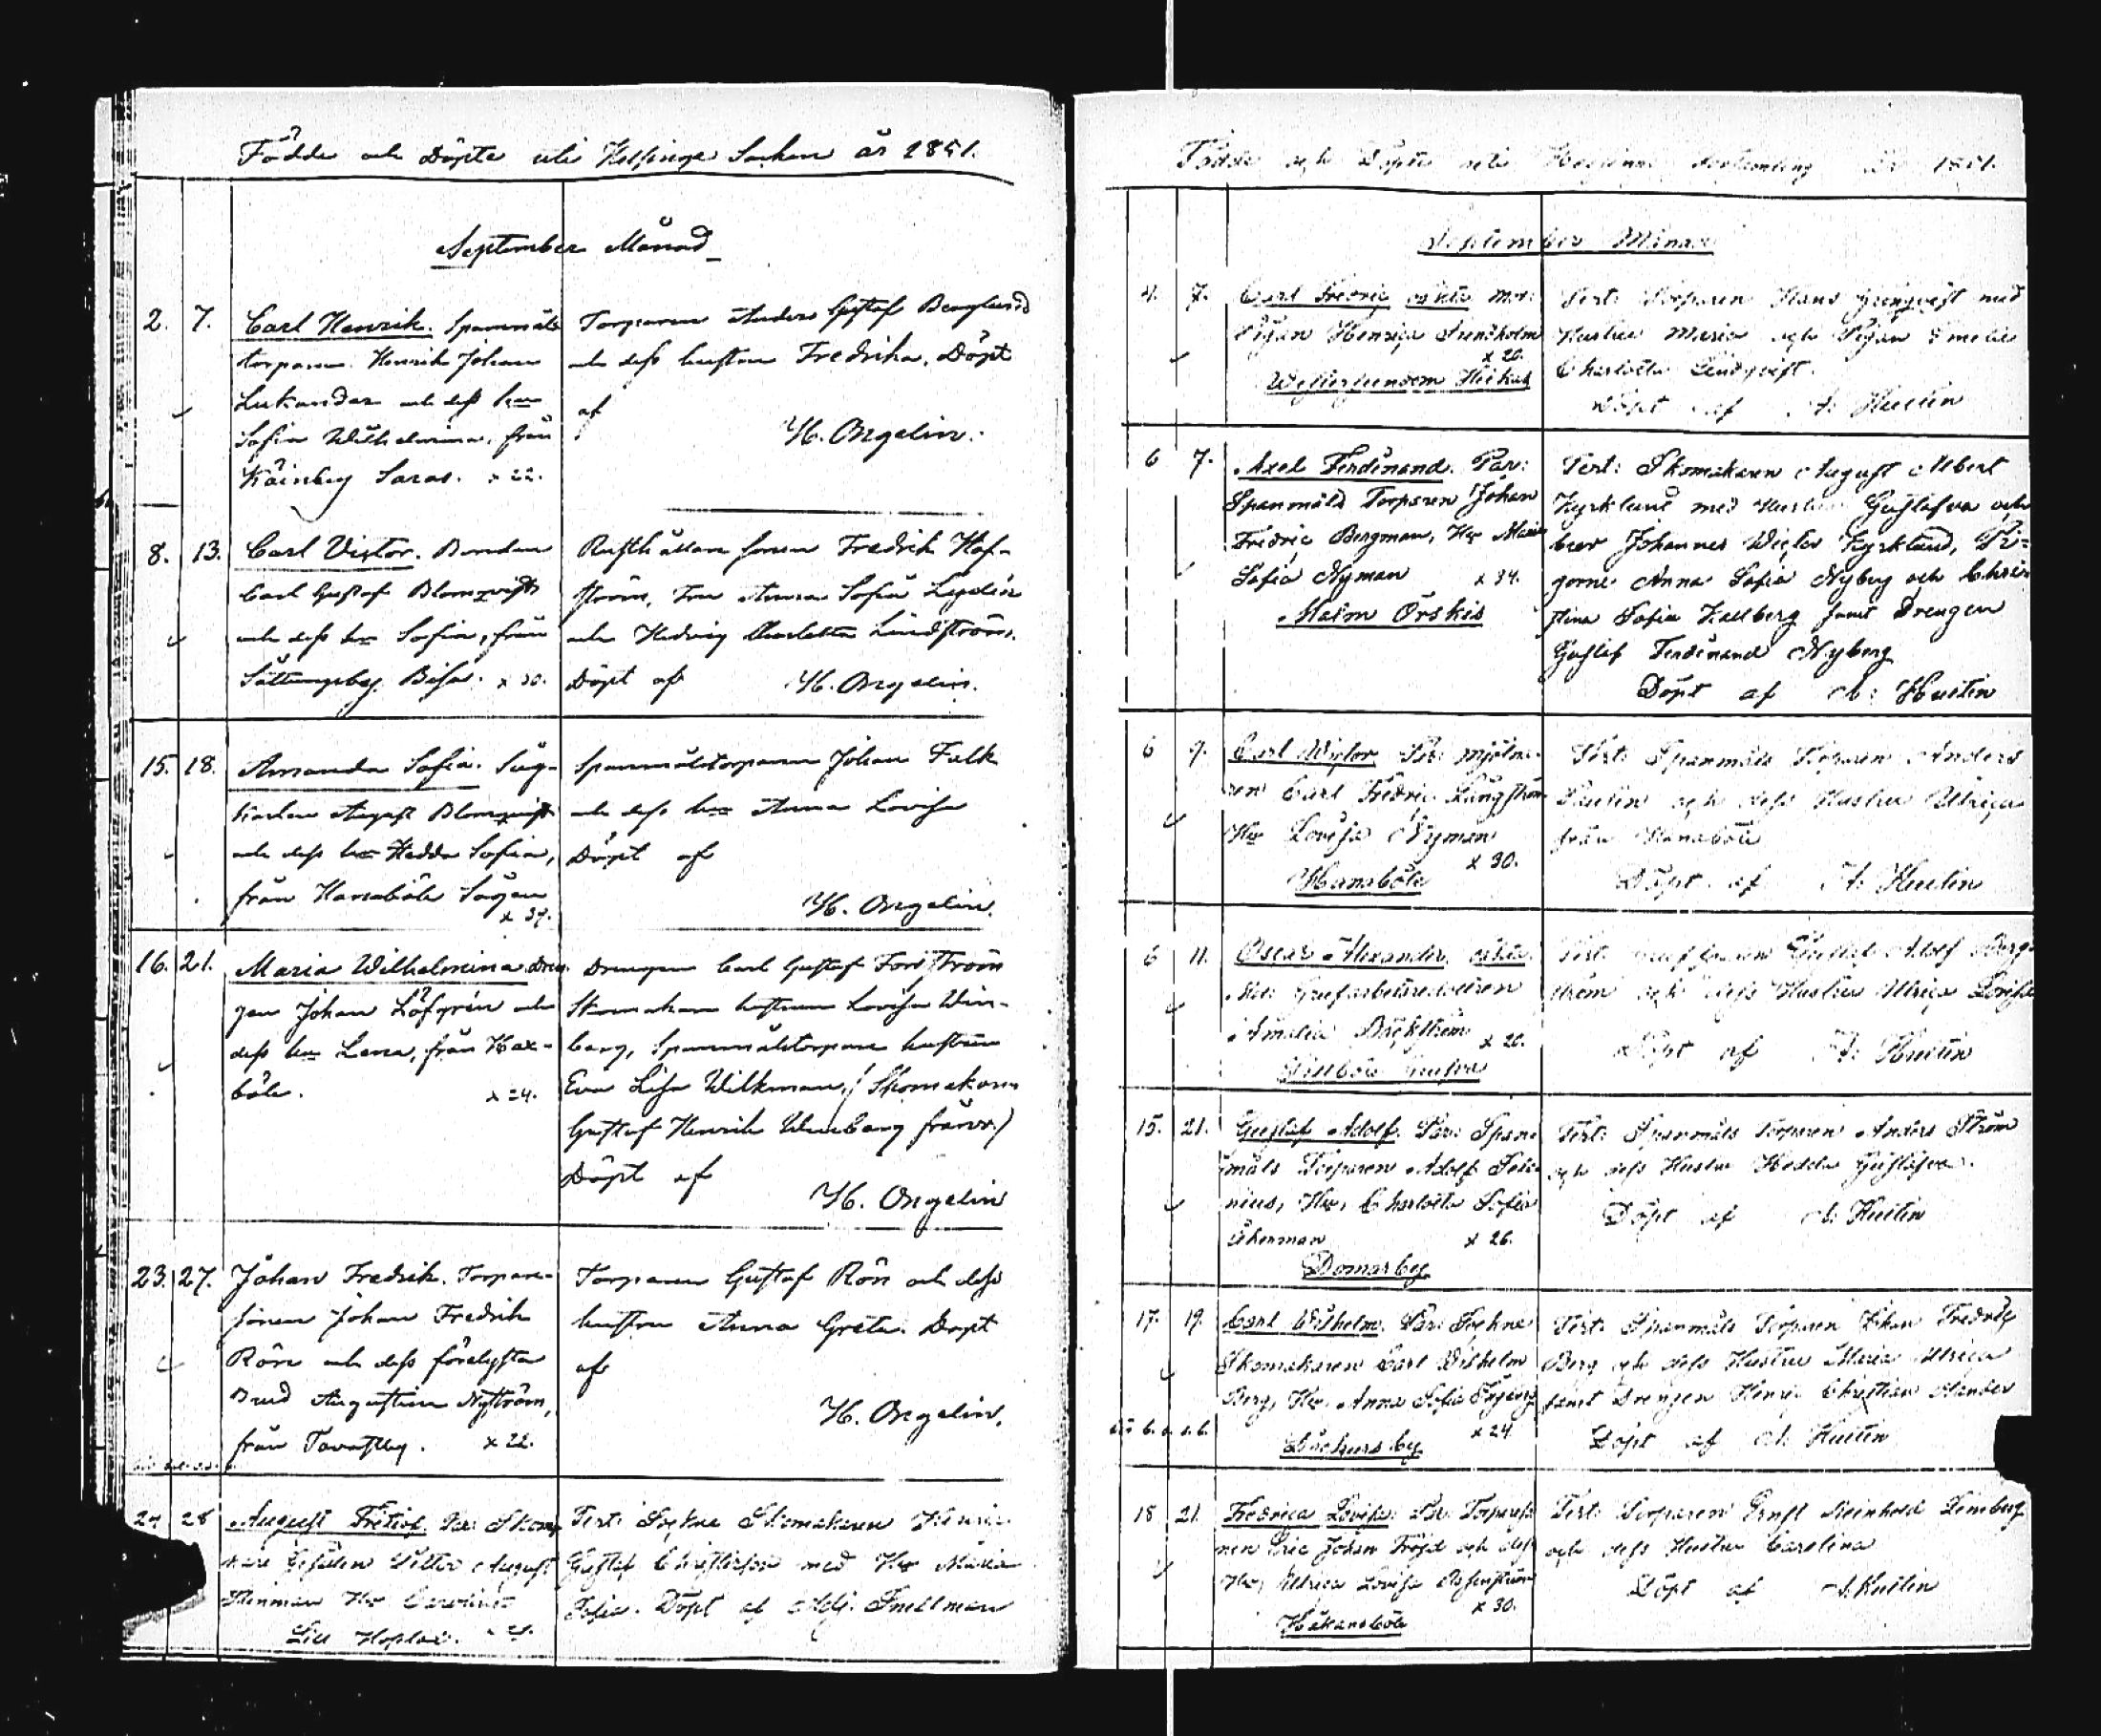 Födde och Döpte uti Helsinge Socken år 1851.
September Månad
2. 7. Carl Henrik. Spanmåls
torparen Henrik Johan
Lukander och dess hu
Sofia Wilhelmina, från
Käinby Saras. x 22.
Torparen Anders Gustaf Berglund
och dess hustru Fredrika. Döpt
af
H. Ongelin.
8. 13. Carl Victor. Bonden
Carl Gustaf Blomqvist
och dess hu Sofia, från
Sottungsby x 30.
Rusthållare sonen Fredrik Haf-
ström, Fru Anna Sofia Lydén
och Hedvig Charlotta Lindström.
Döpt af H. Ongelin.
15. 18. Amanda Sofia. Såg-
karlen August Blomqvist
och dess hu Hedda Sofia,
från Hanaböle Sågen
x 37.
Spanmålstorparen Johan Falk
och dess hu Anna Lovisa
Döpt af
H. Ongelin.
16. 21. Maria Wilhelmina Dren-
gen Johan Löfgrén och
dess hu Lena, från Hax-
böle. x 24.
Drengen Carl Gustaf Forsström
Skomakare hustrun Lovisa Win-
berg, Spanmålstorpare hustrun
Eva Lisa Wilkman, (Skomakaren
Gustaf Henrik Winberg frånv.)
Döpt af
H. Ongelin
23. 27. Johan Fredrik. Torpare-
sonen Johan Fredrik
Rön och dess förelysta
Brud Augustina Nyström,
från Tavastby. x 22.
Torparen Gustaf Rön och dess
hustru Anna Greta. Döpt
af
H. Ongelin.
24 28 August Fritiof. Par: Skom-
are Gesällen Petter August
Stenman Hu Carolina
Lill Hoplax.
Test: Sockne Skomakaren Henric
Gustaf Christierson med Hu Maria
Sofia. Döpt af Adj. Snellman
Födde och Döpte uti Helsinge Församling År 1851.
September Månad
4. 7. Carl Fredric oäkta Mor:
Pigan Henrica Svendholm
x 20.
Test: Torparen Hans Ljungqvist med
Hustru Maria och Pigan Emelie
Charlotta Lindqvist.
Döpt af A: Hustin
6 7. Axel Ferdinand. Par:
Spanmåls Torparen Johan
Fredric Bergman, Hu Maria
Sofia Nyman x 34.
Malm Örskis
Test: Skomakaren August Albert
Kyrklund med Hustru Gustafva och
bror Johannes Wictor Kyrklund, Pi-
gorne Anna Sofia Nyberg och Chri-
stina Sofia Kallberg samt Drengen
Gustaf Ferdinand Nyberg
Döpt af A: Hustin
6 9. Carl Wictor. Par: Mjölna-
ren Carl Fredric Långström
Hu Lovisa Nyman
x 30.
Hanaböle
Test: Spanmåls Torparen Anders
Paulin och dess Hustru Ulrica
från Hanaböle
Döpt af A: Hustin
6 11. Oscar Alexander, oäkta.
Mor: Grufarbetare
Amalia Bäckström x 20.
Sillböle Grufva
Test: Gustaf Adolf Berg-
ström och dess Hustru Ulrica Lovisa
Döpt af A: Hustin
15. 21. Gustaf Adolf. Par: Span-
måls Torparen Adolf Sele-
nius, Hu, Charlotta Sofia
Åkerman x 26.
Domarby
Test: Spanmåls Torparen Anders Ström
och dess Hustru Hedda Gustafva.
Döpt af A: Hustin
17. 19. Carl Wilhelm. Par: Sockne
Skomakaren Carl Wilhelm
Berg, Hu, Anna Sofia
x 24.
Test: Spanmåls Torparen Johan Fredric
Berg och dess Hustru Maria Ulrica
samt Drengen Henric Christian
Döpt af A: Hustin
18 21. Fredrica Lovisa. Par: Torpareso-
nen Eric Johan Fröjd och dess
Hu, Ulrica Lovisa
x 30.
Håkansböle
Test: Torparen Ernst Reinhold Limberg
och dess Hustru Carolina
Döpt af A. Hustin